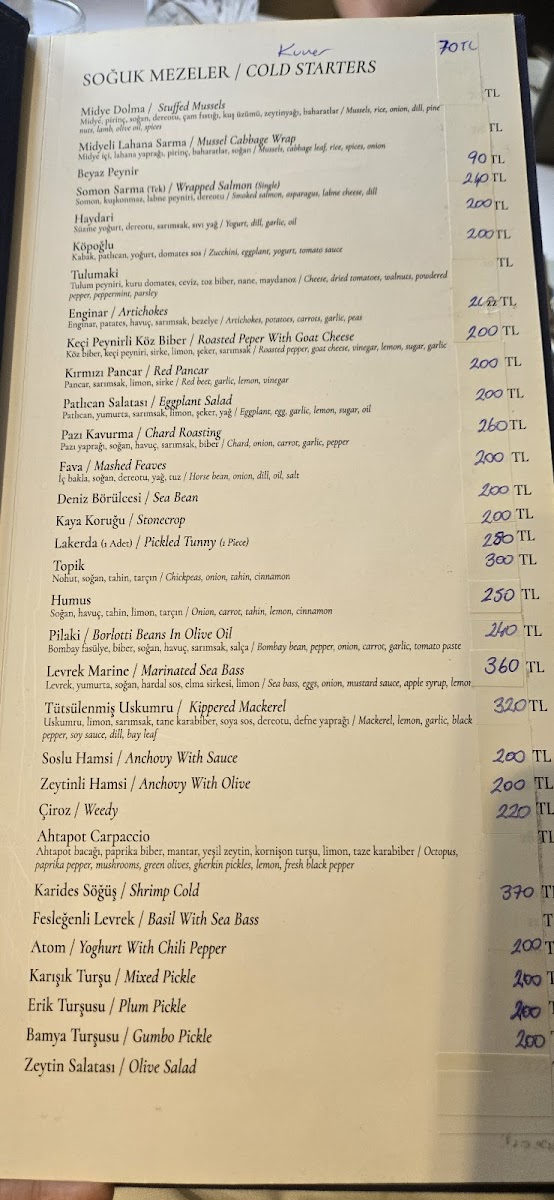 Kuver 70TL
SOĞUK MEZELER / COLD STARTERS
Midye Dolma / Stuffed Mussels TL
Midye, pirinç, soğan, dereotu, çam fıstığı, kuş üzümü, zeytinyağı, baharatlar / Mussels, rice, onion, dill, pine
nuts, lamb, olive oil, spices
Midyeli Lahana Sarma / Mussel Cabbage Wrap TL
Midye içi, lahana yaprağı, pirinç, baharatlar, soğan / Mussels, cabbage leaf, rice, spices, onion
Beyaz Peynir 90 TL
Somon Sarma (Tek) / Wrapped Salmon (Single) 240 TL
Somon, kuşkonmaz, labne peyniri, dereotu / Smoked salmon, asparagus, labne cheese, dill
Haydari 200 TL
Süzme yoğurt, dereotu, sarımsak, sıvı yağ / Yogurt, dill, garlic, oil
Köpoğlu 200 TL
Kabak, patlıcan, yoğurt, domates sos / Zucchini, eggplant, yogurt, tomato sauce
Tulumaki TL
Tulum peyniri, kuru domates, ceviz, toz biber, nane, maydanoz / Cheese, dried tomatoes, walnuts, powdered
pepper, peppermint, parsley
Enginar / Artichokes TL
Enginar, patates, havuç, sarımsak, bezelye / Artichokes, potatoes, carrots, garlic, peas
Keçi Peynirli Köz Biber / Roasted Peper With Goat Cheese 200 TL
Köz biber, keçi peyniri, sirke, limon, şeker, sarımsak / Roasted pepper, goat cheese, vinegar, lemon, sugar, garlic
Kırmızı Pancar / Red Pancar 200 TL
Pancar, sarımsak, limon, sirke / Red beer, garlic, lemon, vinegar
Patlıcan Salatası / Eggplant Salad 200 TL
Patlıcan, yumurta, sarımsak, limon, şeker, yağ / Eggplant, egg, garlic, lemon, sugar, oil
Pazı Kavurma / Chard Roasting 260 TL
Pazı yaprağı, soğan, havuç, sarımsak, biber / Chard, onion, carrot, garlic, pepper
Fava / Mashed Feaves 200 TL
İç bakla, soğan, dereotu, yağ, tuz / Horse bean, onion, dill, oil, salt
Deniz Börülcesi / Sea Bean 200 TL
Kaya Koruğu / Stonecrop 200 TL
Lakerda (1 Adet) / Pickled Tunny (1 Piece) 280 TL
Topik 300 TL
Nohut, soğan, tahin, tarçın / Chickpeas, onion, tahin, cinnamon
Humus 250 TL
Soğan, havuç, tahin, limon, tarçın / Onion, carrot, tahin, lemon, cinnamon
Pilaki / Borlotti Beans In Olive Oil 240 TL
Bombay fasülye, biber, soğan, havuç, sarımsak, salça / Bombay bean, pepper, onion, carrot, garlic, tomato paste
Levrek Marine / Marinated Sea Bass 360 TL
Levrek, yumurta, soğan, hardal sos, elma sirkesi, limon / Sea bass, eggs, onion, mustard sauce, apple syrup, lemon
Tütsülenmiş Uskumru / Kippered Mackerel 320 TL
Uskumru, limon, sarımsak, tane karabiber, soya sos, dereotu, defne yaprağı / Mackerel, lemon, garlic, black
pepper, soy sauce, dill, bay leaf
Soslu Hamsi / Anchovy With Sauce 200 TL
Zeytinli Hamsi / Anchovy With Olive 200 TL
Çiroz / Weedy 220 TL
Ahtapot Carpaccio TL
Ahtapot bacağı, paprika biber, mantar, yeşil zeytin, kornişon turşu, limon, taze karabiber / Octopus,
paprika pepper, mushrooms, green olives, gherkin pickles, lemon, fresh black pepper
Karides Söğüş / Shrimp Cold 370 T
Fesleğenli Levrek / Basil With Sea Bass T
Atom / Yoghurt With Chili Pepper 200 T
Karışık Turşu / Mixed Pickle 200
Erik Turşusu / Plum Pickle 200
Bamya Turşusu / Gumbo Pickle 200
Zeytin Salatası / Olive Salad